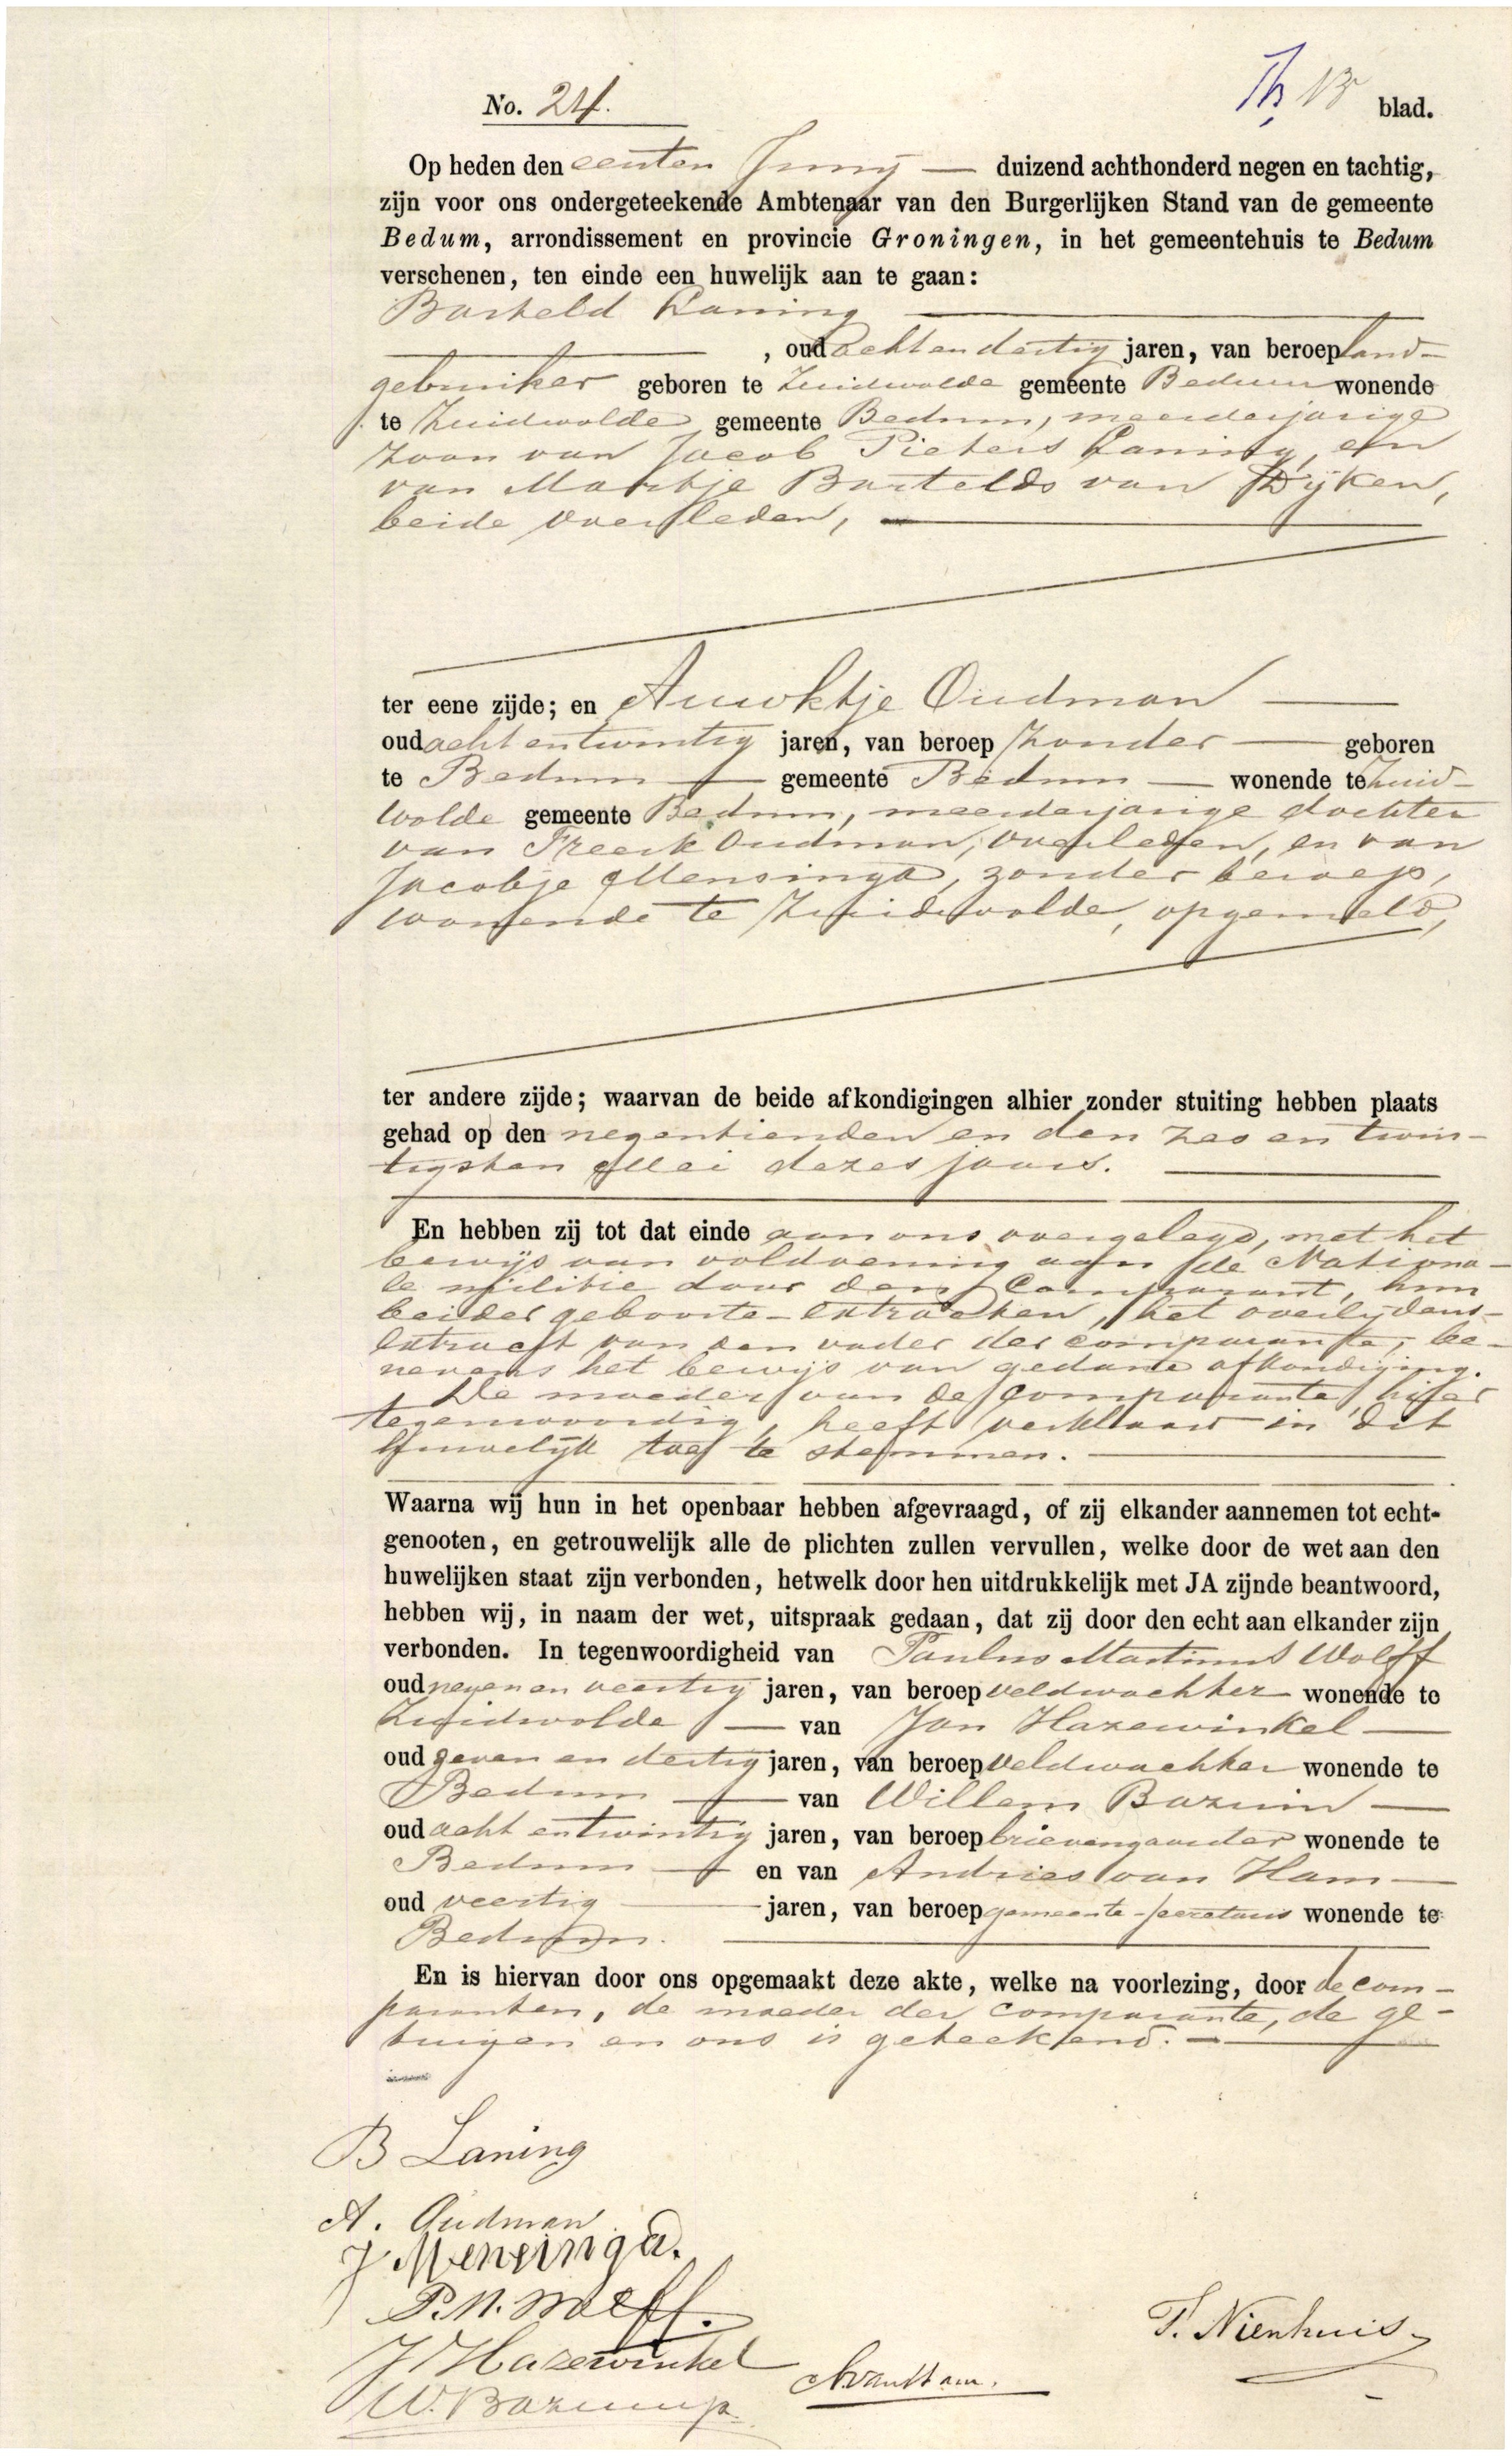 No. 24.
13 blad.
Op heden den eersten Junij — duizend achthonderd negen en tachtig,
zijn voor ons ondergeteekende Ambtenaar van den Burgerlijken Stand van de gemeente
Bedum, arrondissement en provincie Groningen, in het gemeentehuis te Bedum
verschenen, ten einde een huwelijk aan te gaan:
Barteld Laning
, oud achtendertig jaren, van beroep land-
gebruiker geboren te Zuidwolde gemeente Bedum wonende
te Zuidwolde gemeente Bedum, meerderjarige
zoon van Jacob Pieters Laning, en
van Martje Bartelds van Dijken,
beide overleden, —
ter eene zijde; en Auwktje Oudman —
oud acht en twintig jaren, van beroep zonder — geboren
te Bedum — gemeente Bedum — wonende te Zuid-
wolde gemeente Bedum, meerderjarige dochter
van Freerk Oudman, overleden, en van
Jacobje Mensinga, zonder beroep,
wonende te Zuidwolde, opgemeld,
ter andere zijde; waarvan de beide afkondigingen alhier zonder stuiting hebben plaats
gehad op den negentienden en den zes en twin-
tigsten Mei dezes jaars.
En hebben zij tot dat einde aan ons overgelegd, met het
bewijs van voldoening aan de Nationa-
le militie door den Comparant, hun
beider geboorte-extracten, het overlijdens-
extract van den vader der comparante, be-
nevens het bewijs van gedane afkondiging.
De moeder van de Comparante, hier
tegenwoordig, heeft verklaard in dit
huwelijk toe te stemmen.
Waarna wij hun in het openbaar hebben afgevraagd, of zij elkander aannemen tot echt-
genooten, en getrouwelijk alle de plichten zullen vervullen, welke door de wet aan den
huwelijken staat zijn verbonden, hetwelk door hen uitdrukkelijk met JA zijnde beantwoord,
hebben wij, in naam der wet, uitspraak gedaan, dat zij door den echt aan elkander zijn
verbonden. In tegenwoordigheid van Paulus Martinus Wolff
oud negen en veertig jaren, van beroep veldwachter wonende te
Zuidwolde — van Jan Hazewinkel —
oud zeven en dertig jaren, van beroep veldwachter wonende te
Bedum — van Willem Bazuin —
oud acht en twintig jaren, van beroep brievengaarder wonende te
Bedum — en van Andries van Ham —
oud veertig — jaren, van beroep gemeente-secretaris wonende te
Bedum.
En is hiervan door ons opgemaakt deze akte, welke na voorlezing, door de com-
paranten, de moeder der comparante, de ge-
tuigen en ons is geteekend. —
B Laning
A. Oudman
J Mensinga.
P.M. Wolff.
J Hazewinkel
W. Bazuin
AvanHam.
T. Nienhuis